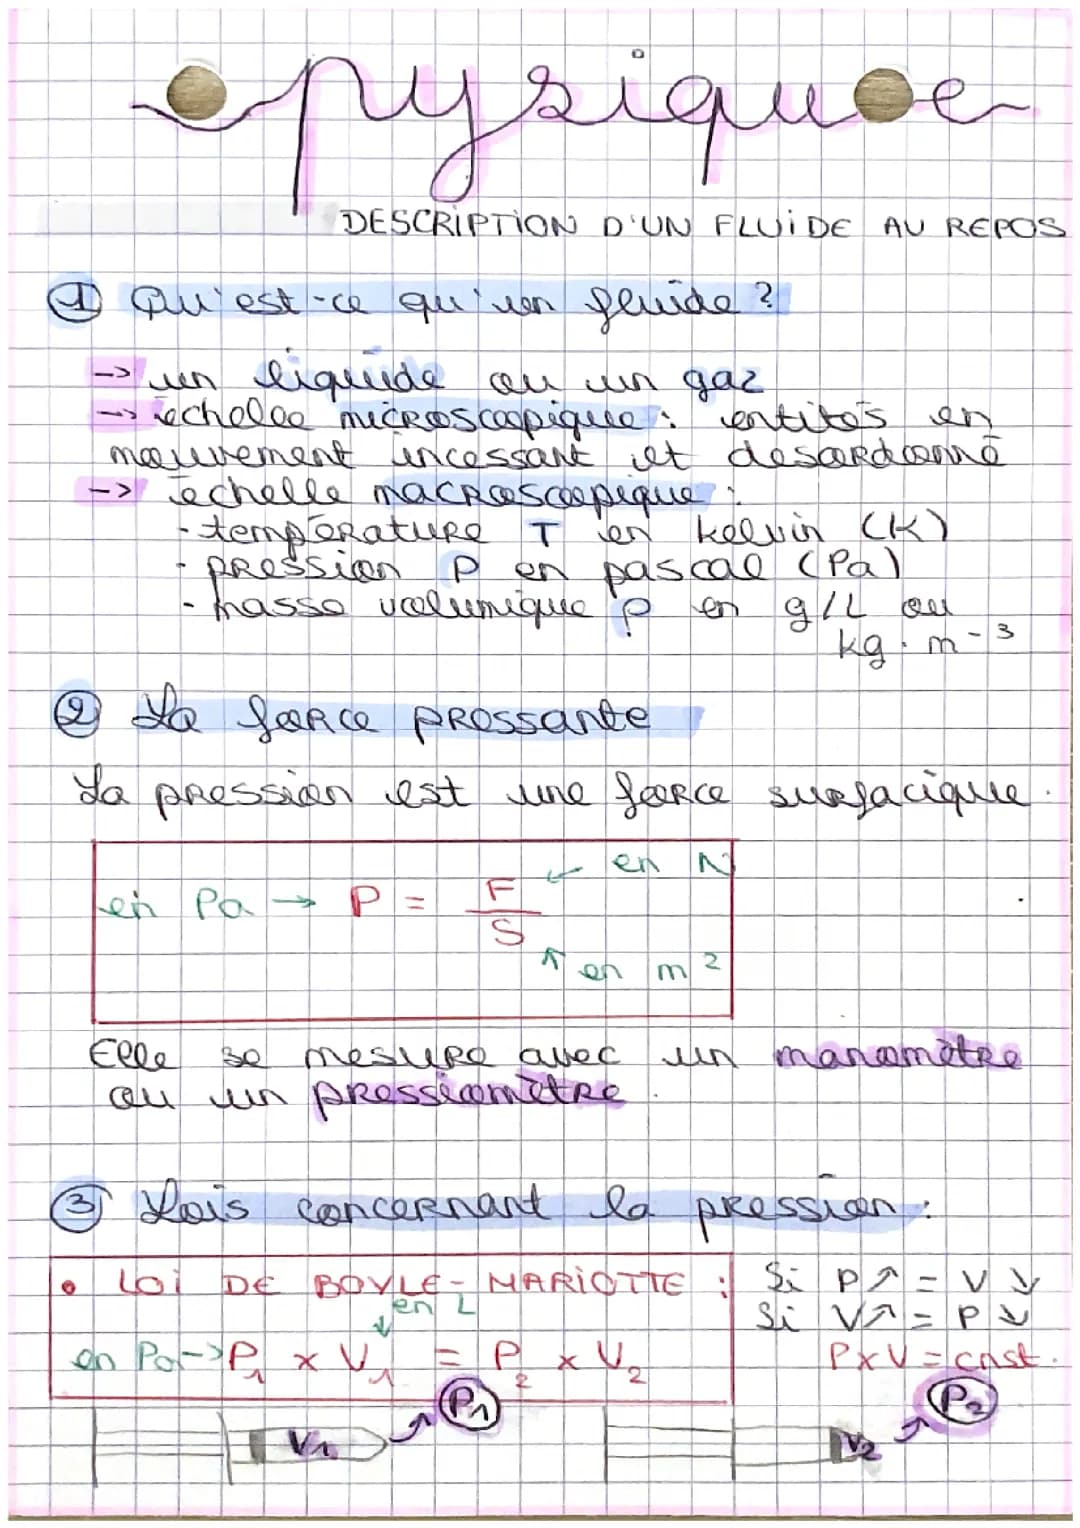 pysique
DESCRIPTION D'UN FLUIDE AU REPOS
① Qu'est-ce qu'un fluide ?
-> un liquide ou un gaz
-> échelle microscopique : entités en
mouvement incessant et desordonné
-> échelle macroscopique :
- température T en kelvin (K)
- pression P en pascal (Pa)
- masse volumique ρ en g/L ou
kg.m-3
② La force pressante
La pression est une force surfacique.
en Pa → P = F/S ← en N
↑ en m²
Elle se mesure avec un manomètre
ou un pressiomètre.
③ Lois concernant la pression :
• LOI DE BOYLE-MARIOTTE :
en L
en Pa -> P₁ x V₁ = P₂ x V₂
Si P↗ = V↘
Si V↗ = P↘
PxV = cnst.
V₁ P₁
V₂ P₂